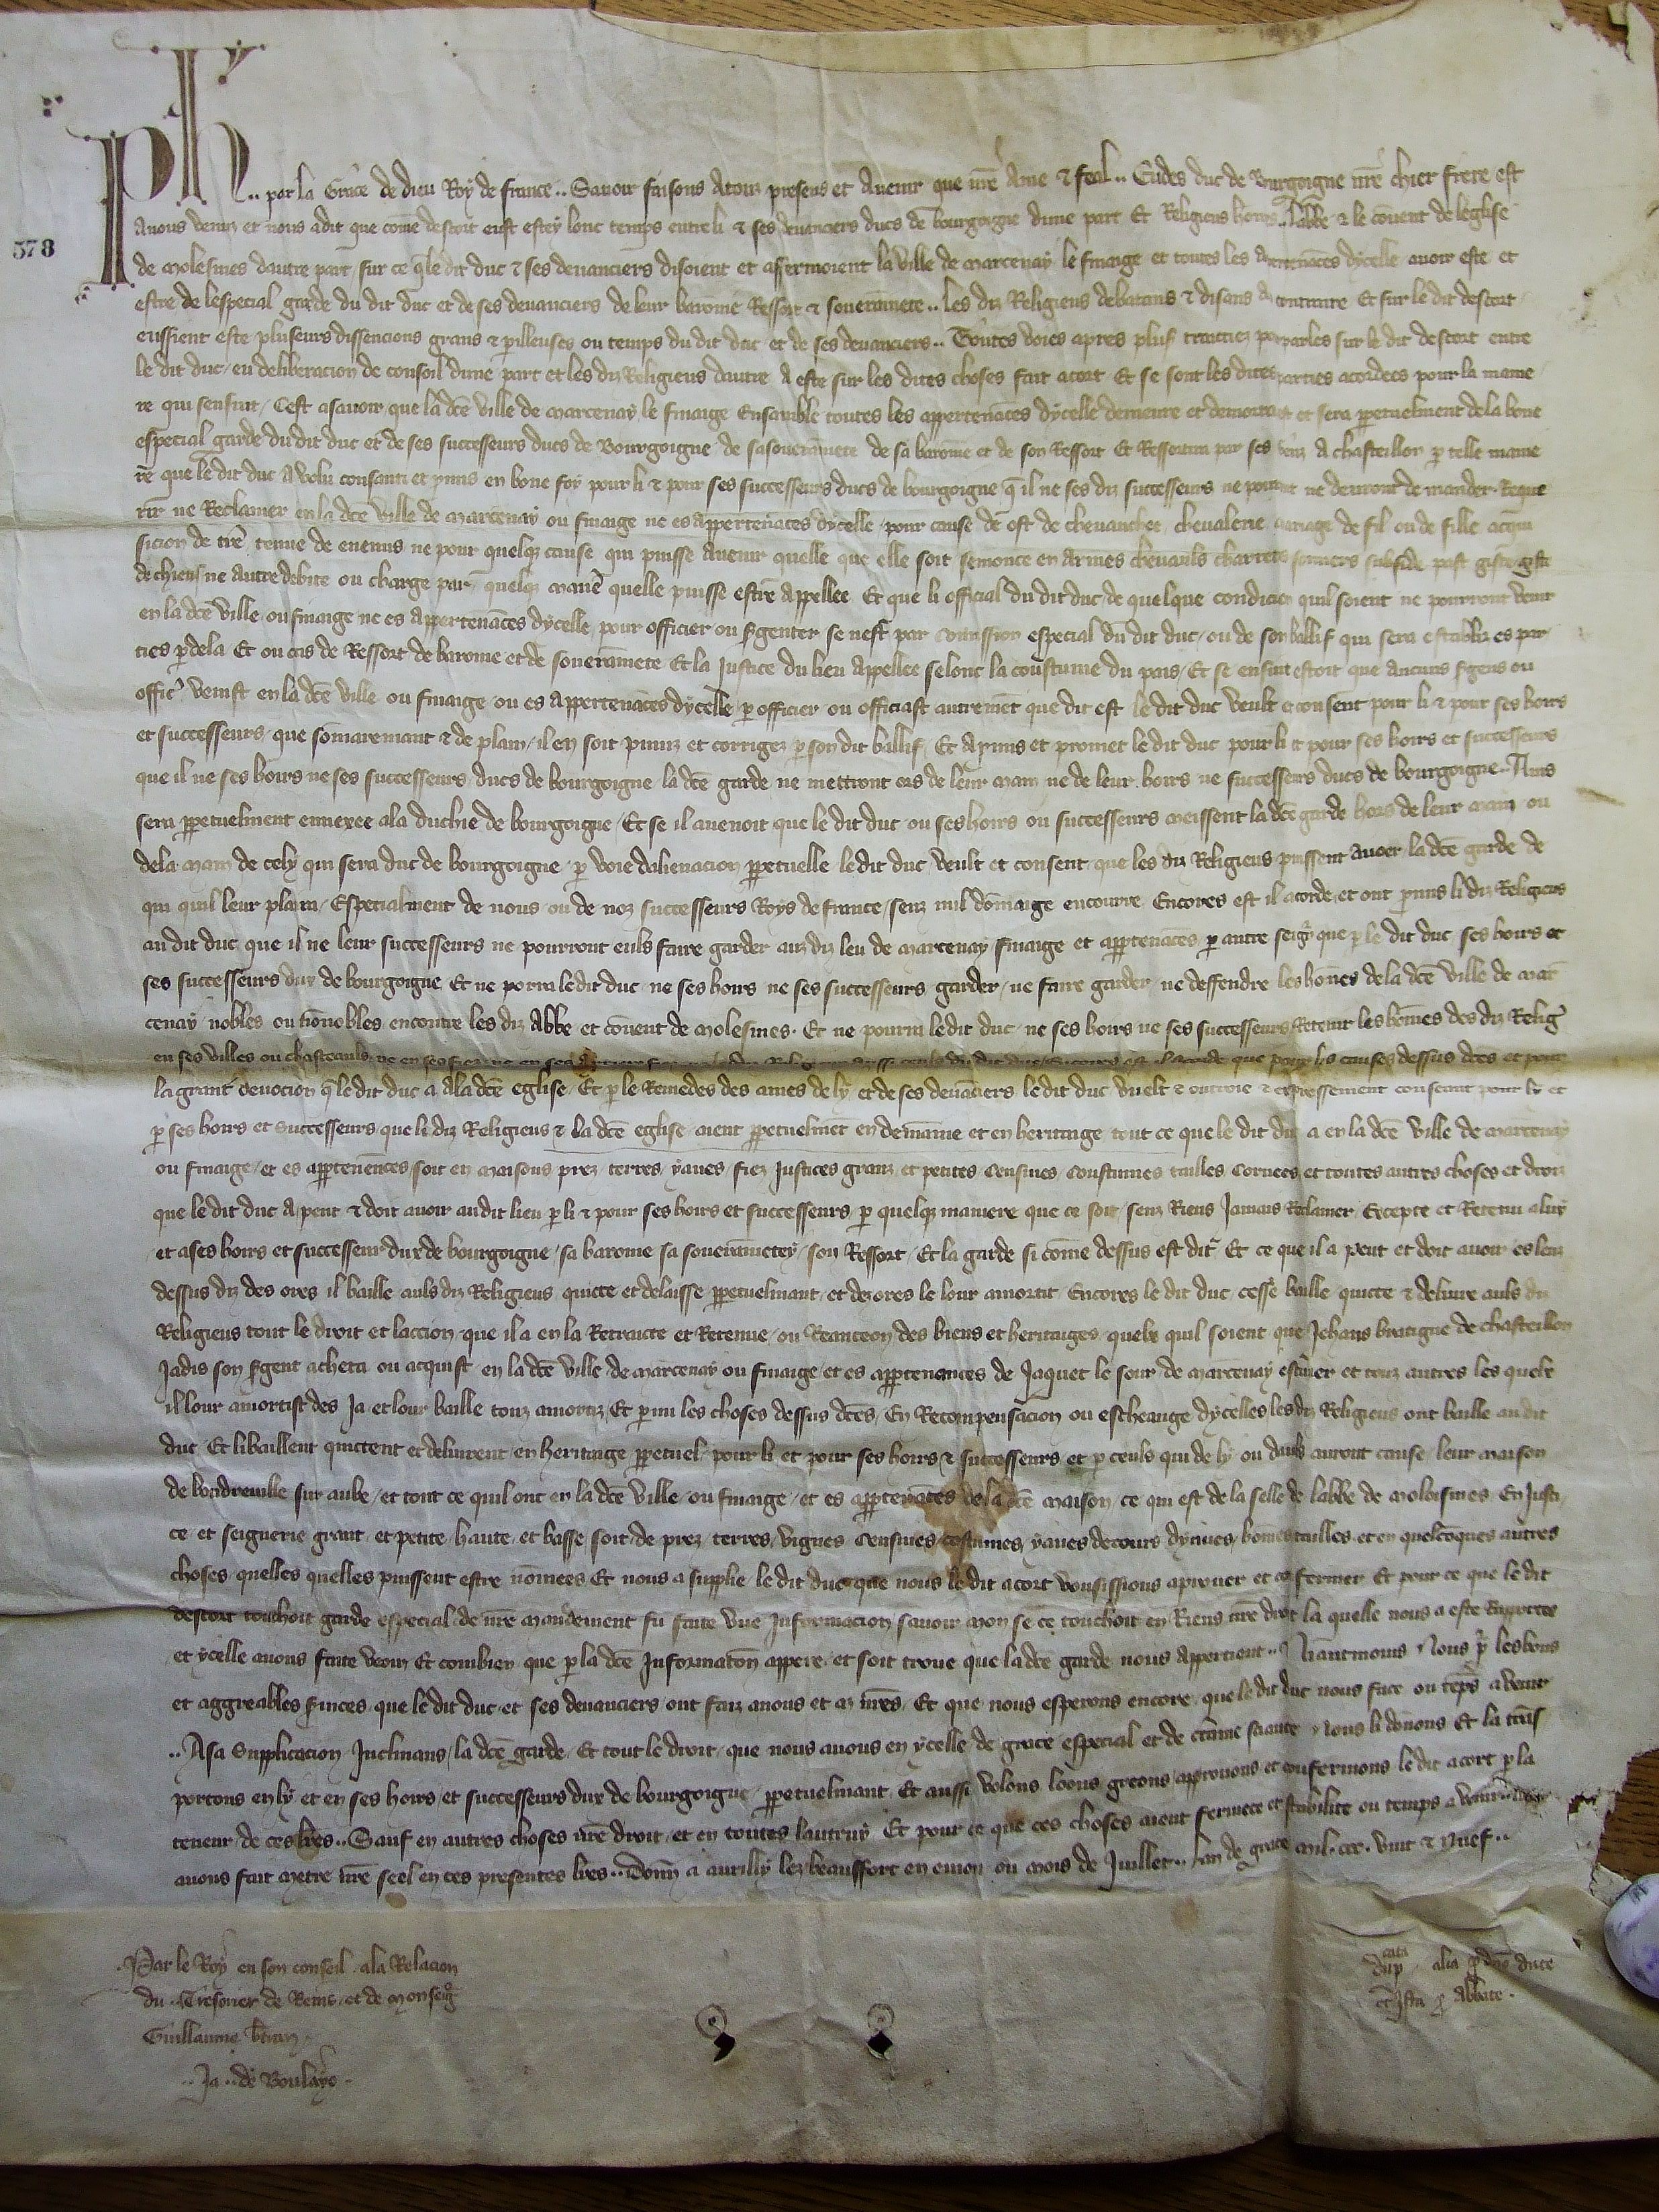 378
Ph .. par la Grace de dieu Roy de france .. Savoir faisons Atouz presens et Avenir que nr̃e Ame & feal .. Eudes duc de Bourgoigne nr̃e chier frere est
Anous venuz et nous adit que com̃e descort eust estey lonc temps entre li & ses devanciers ducs de bourgoigne dune part Et Religieus homes .. labbe & le covent de leglise
de Molesmes dautre part / sur ce q̃ le dit duc & ses devanciers disoient et affermoient la ville de Marcenay le finaige et toutes les appartenãces dycelle avoir este et
estre de lespecial garde du dit duc et de ses devanciers de leur baronie Ressort & soverainnete .. Les diz Religieus debatans & disans au contraire Et sur le dit descort
eussient este pluseurs dissencions grans & perilleuses ou temps du dit duc et de ses devanciers .. Toutes voies apres plus traitiez porparles sur le dit descort entre
le dit duc / eu deliberacion de conseil dune part et les diz Religieus dautre A este sur les dites choses fait acort Et se sont les dites parties acordees pour la manie
re qui sensuit / Cest asavoir que la dc̃e ville de Marcenay le finaige Ensamble toutes les appertenãces dycelle demeure et demorra et sera perpetuelment de la bone
especial garde du dit duc et de ses successeurs ducs de Bourgoigne de sa soverainnete de sa baronie et de son Ressort Et Ressortira par ses a chasteillon p̱ telle manie
re que le dit duc A volu consanti et promis en bone foy pour li & pour ses successeurs ducs de bourgoigne q̃ il ne ses diz successeurs ne pourront ne devront demander Reque
rir ne Reclamer en la dc̃e ville de Marcenay ou finaige ne es appertenãces dycelle / pour cause de ost de chevauchee, chevalerie mariage de fil ou de fille acqui
sicion de tr̃e tenue de enemis ne pour quelq̃ cause qui puisse avenir quelle que elle soit semonce en armes chevauls charretes somiers subside past giste giste
de chiens ne autre debite ou charge par quelq̃ manr̃e quelle puisse estre appellee Et que li official du dit duc de quelque condicion quil soient ne pourront venir
en la dc̃e ville ou finaige ne es appertenãces dycelle pour officier ou sergenter se nest par comission especial du dit duc / ou de son baillif qui sera establiz es par
ties p̱ dela Et ou cas de Ressort de baronie et de soverainnete Et la Justice du lieu appellee selonc la coustume du pais / Et se ensint estoit que aucuns sergens ou
offic̃ venist en la dc̃e ville ou finaige / ou es appertenãces dycelle p̱ officier ou officiast autremẽt que dit est le dit duc veult & consent pour li & pour ses hoirs
et successeurs / que som̃arement & de plain / il en soit puniz et corrigez p̱ son dit baillif / Et a promis et promet le dit duc pour li & pour ses hoirs et successeurs
que il ne ses hoirs ne ses successeurs ducs de bourgoigne la dc̃e garde ne mettront ors de leur main ne de leur hoirs ne successeurs ducs de bourgoigne .. Ains
sera p̱petuelment ennexee ala duchie de bourgoigne / Et se il avenoit que le dit duc ou ses hoirs ou successeurs meissent la dc̃e garde hors de leur main ou
dela main de cely qui sera duc de bourgoigne / p̱ voie dalienacion p̱petuelle le dit duc veult et consent que les diz Religieus puissent avoer la dc̃e garde de
qui quil leur plaira / Especialment de nous ou de noz successeurs Roys de france / senz nul dõmaige encourre Encores est il acorde et ont p̱mis li diz Religieus
au dit duc que il ne leur successeurs ne pourront euls faire garder auz diz leu de Marcenay finaige et app̱tenãces p̱ autre seigr̃ que p̱ le dit duc ses hoirs et
ses successeurs dux de bourgoigne Et ne porra le dit duc ne ses hoirs ne ses successeurs garder / ne faire garder ne deffendre les hom̃es dela dc̃e ville de Mar
cenay / nobles ou nõnobles encontre les diz Abbe et covent de Molesmes . Et ne pourra le dit duc ne ses hoirs ne ses successeurs Retenir les hom̃es des diz Relig̃
en ses villes ou chasteauls que pour les causes dessus dc̃es et pour
la grant devocion q̃ le dit duc a ala dc̃e eglise / Et p̱ le Remedes des ames de ly et de ses devãciers le dit duc vuelt & outroie & expressement consent pour ly et
p̱ ses hoirs et successeurs que li diz Religieus & la dc̃e eglise aient p̱petuelmẽt en demaine et en heritaige tout ce que le dit duc a en la dc̃e ville de Marcenay
ou finaige / et es app̱tenences soit en maisons prez terres yaues / fiez Justices granz et petites Censines Coustumes tailles Corvees et toutes autres choses et droiz
que le dit duc A / peut & doit avoir audit lieu p̱ li & pour ses hoirs et successeurs / p̱ quelq̃ maniere que ce soit / senz Riens Jamais Reclamer / Excepte et Retenu aluy
et a ses hoirs et successeur dux de bourgoigne / sa baronie sa soverainnetey / son Ressort / Et la garde si com̃e dessus est dit Et ce que il a peut et doit avoir es leuz
dessus diz des ores il baille auls diz Religieus quicte et delaisse p̱petuelment / et dezores le lour amortit Encores le dit duc / cesse baille quicte & delivre auls diz
Religieus tout le droit et laccion / que il a en la Retraicte et Retenue / ou Reanceon des biens et heritaiges quelx quil soient que Jehans bratigue de chasteillon
Jadis son sergent acheta ou acquist en la dc̃e ville de Marcenay ou finaige / et es app̱tenances de Jaquet le sour de Marcenay escuier et touz autres les quelx
il lour amortist des Ja / et lour baille touz amortiz / Et p̱mi les choses dessus dc̃es / En Recompensacion ou escheange dycelles les diz Religieus ont baille au dit
duc / Et li baillent quictent et delivrent en heritaige p̱petuel / pour li et pour ses hoirs & successeurs et p̱ ceuls qui de ly ou dauls auront cause / leur maison
de boudreville sur aube / et tout ce quil ont en la dc̃e ville / ou finaige / et es app̱tenãces dela dc̃e maison ce qui est de la selle de labbe de moloismes En Justi
ce / et seignerie grant et petite haute et basse soit de prez / terres / vignes Censines / costumes yaues decours dyaues / homes tailles et en quelcõques autres
choses quelles quelles puissent estre nõmees Et nous a supplie le dit duc que nous le dit acort vousissions aprover et cõfermer Et pour ce que le dit
descort touchoit garde especial de nr̃e mandement fu faite une Informacion savoir mon se ce touchoit en Riens nr̃e droit la quelle nous a este Raportee
et ycelle avons faite veoir Et combien que p̱ la dc̃e Informacõn appere / et soit trove que la dc̃e garde nous appertient .. Niantmoins Nous p̱ les bons
et aggreables services que le dit duc et ses devanciers ont faiz anous et az nr̃es / Et que nous esperons encore que le dit duc nous face ou tẽps avenir
.. Asa Supplicacion Inclinans / la dc̃e garde / Et tout le droit / que nous avons en ycelle de grace especial et de c̃taine sciance Nous li donons Et la trãs
portons en ly et en ses hoirs / et successeurs dux de bourgoigne p̱petuelmant / Et aussi volons loons greons approvons et confermons le dit acort p̱ la
teneur de ces lr̃es .. Sauf en autres choses nr̃e droit / et en toutes lautruy Et pour ce que ces choses aient fermete et stabilite ou temps avenir
avons fait metre nr̃e seel en ces presentes lr̃es .. Donn̄ a aurilly lez beaufort en mois de Juillet .. lan de grace Mil . ccc . vint & Nuef ..
Par le Roy en son conseil ala Relacion
du Tresorier de Reins / et de Monseigr̃
Guillaume
.. Ja .. de Boulayo
dup̱cata alia p̱ dño duce
Ista p̱ Abbate .